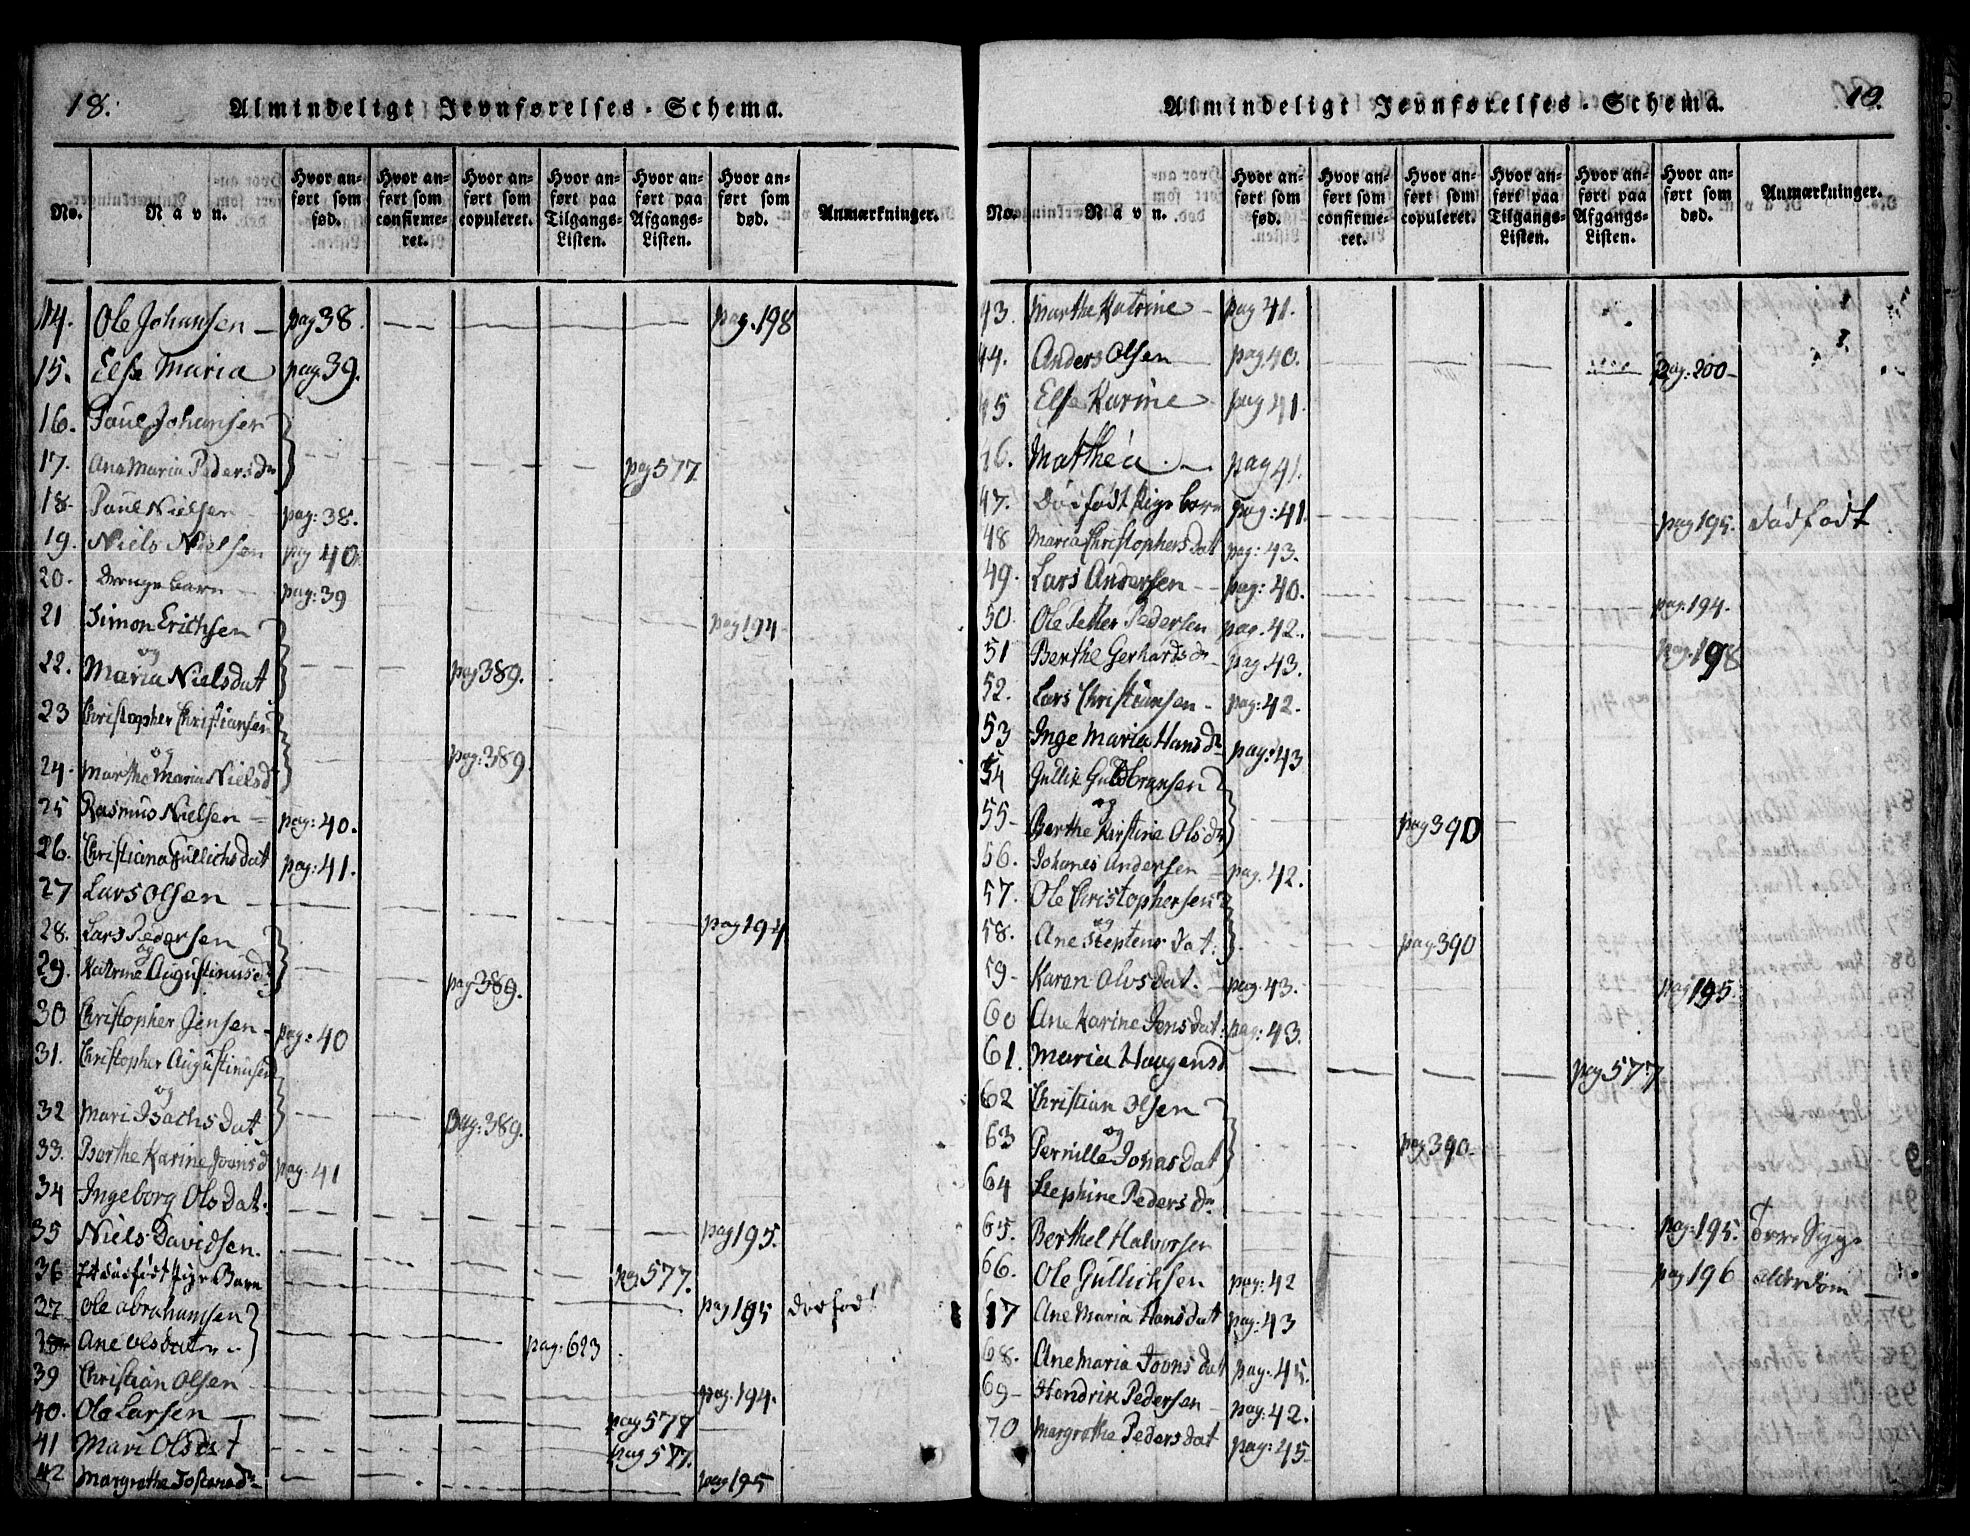 18.
Almindeligt Jevnførelses-Schema.
No. | Navn. | Hvor anført som fød. | Hvor anført som confirmeret. | Hvor anført som copuleret. | Hvor anført paa Tilgangs-Listen. | Hvor anført paa Afgangs-Listen. | Hvor anført som død. | Anmærkninger.
14. Ole Johansen pag 38. pag. 198
15. Else Maria pag 39.
16. Paul Johansen
17. Ane Maria Pedersdr pag 577.
18. Paul Nielsen pag: 38.
19. Niels Nielsen pag 40.
20. Drenge barn pag: 39
21 Simon Erichsen pag 194
og
22. Maria Nielsdat pag 389.
23 Christopher Christiansen
og pag: 389.
24. Marthe Maria Nielsd
25 Rasmus Nielsen pag: 40.
26. Christiana Gullichsdat pag: 41.
27 Lars Olsen pag 194
28. Lars Pedersen
og
29. Katrine Augustinusd pag 389.
30 Christopher Jensen pag: 40
31. Christopher Augustinusen
og
32 Mari Isachsdat pag: 389.
33. Berthe Karine Joonsd pag. 41
34 Ingeborg Olsdat. pag 195.
35 Niels Davidsen. pag 577.
36 Et dødfødt Pige Barn pag 195 dødfød
37 Ole Abrahamsen
38 Ane Olsdatr pag: 623.
39 Christian Olsen pag. 194.
40. Ole Larsen pag 577
41 Mari Olsdat pag 577.
42 Margrethe Jostensdr pag 195
19.
Almindeligt Jevnførelses-Schema.
No. | Navn. | Hvor anført som fød. | Hvor anført som confirmeret. | Hvor anført som copuleret. | Hvor anført paa Tilgangs-Listen. | Hvor anført paa Afgangs-Listen. | Hvor anført som død. | Anmærkninger.
43. Marthe Katrine pag 41.
44. Anders Olsen pag 40. pag: 200
45 Else Karine pag 41.
46. Mathea pag 41.
47. Dødfødt Pige barn pag: 41. pag 195. dødfødt
48 Maria Christophersdat pag: 43.
49. Lars Andersen pag: 40. pag. 194.
50. Ole Petter Pedersen pag. 42. pag. 198
51 Berthe Gerhardsdr pag. 43.
52. Lars Christiansen pag: 42.
53 Inge Maria Hansdr pag: 43
54 Gullik Guldbransen
og
55 Berthe Kirstine Olsdr pag 390
56. Johanes Andersen pag. 42.
57. Ole Christophersen
og
58. Ane Steptens dat. pag 390
59 Karen Olvsdat. pag. 43. pag 195.
60 Ane Karine Jonsdat. pag: 43.
61. Maria Haagensd pag 577
62 Christian Olsen
og
63 Pernille Jonasdat pag 390.
64 Stephine Pedersdr pag. 195.
65. Berthel Halvorsen pag 196 alderdom
66. Ole Gullichsen pag: 42
67 Ane Maria Hansdat pag: 43
68. Ane Maria Joonsdat pag. 45.
69 Hendrik Pedersen pag: 42.
70 Margrethe Pedersdat pag: 45